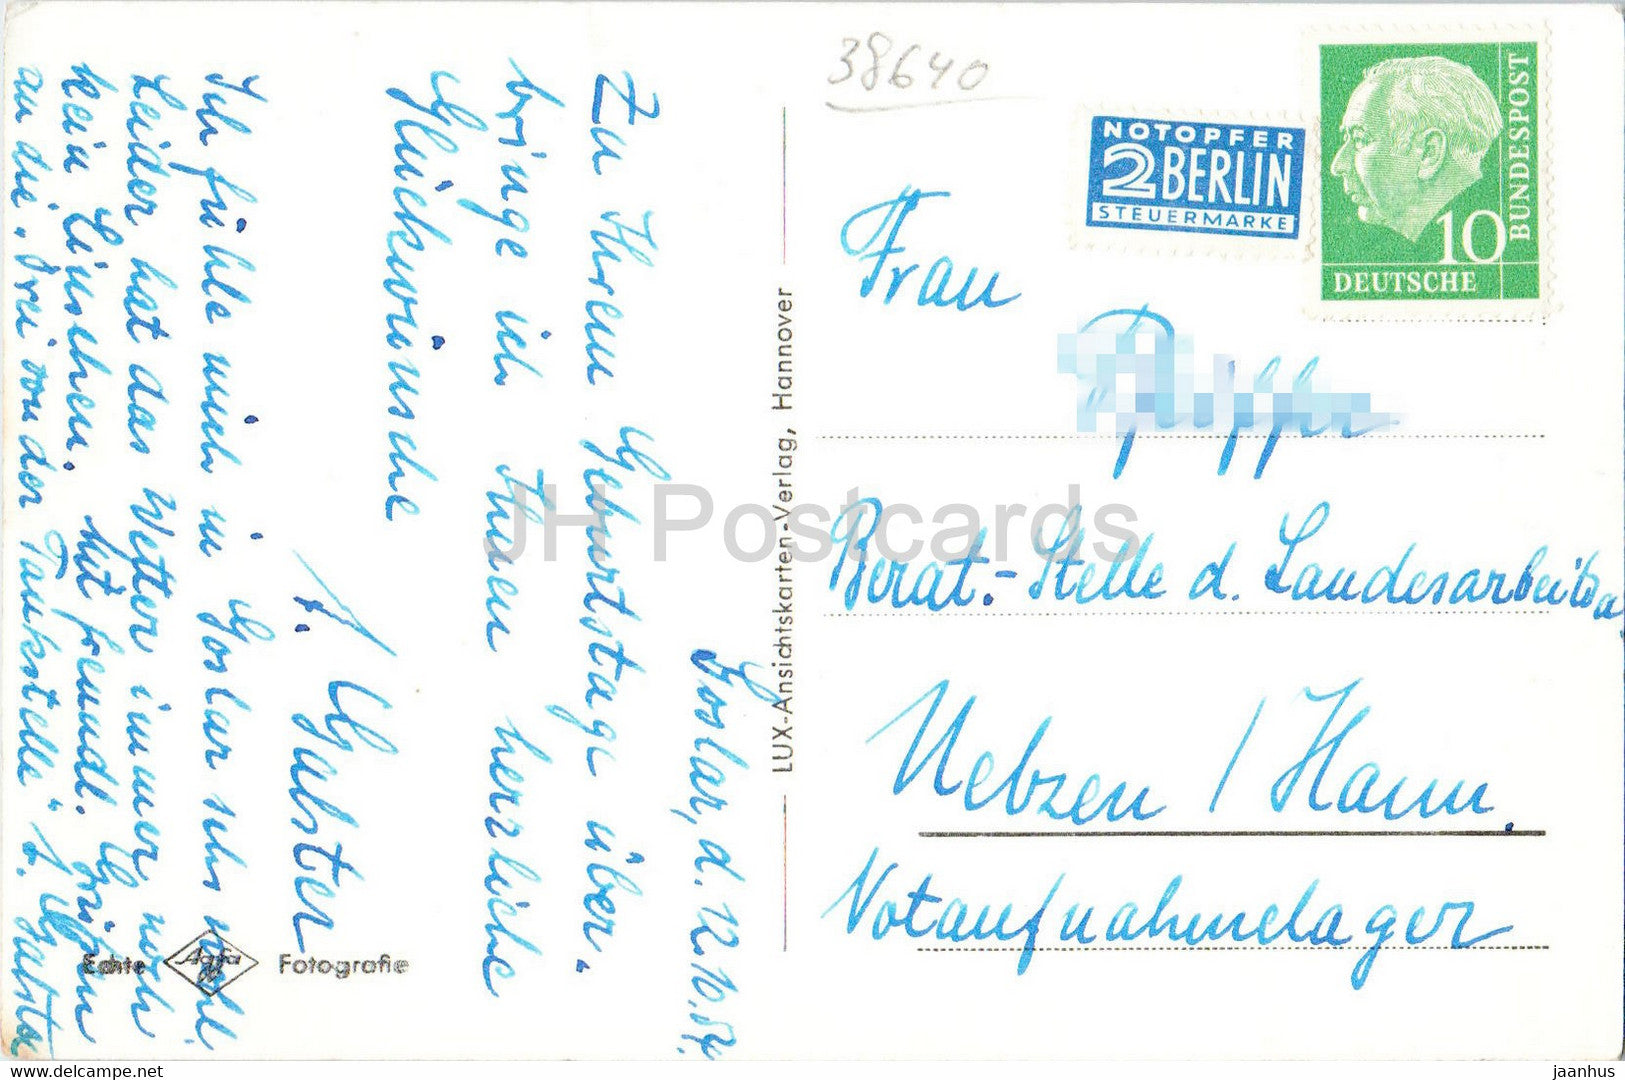 38640
NOTOPFER
2 BERLIN
STEUERMARKE
10
DEUTSCHE
BUNDESPOST
Goslar, d. 12.10.54.
Zu Ihrem Geburtstage über-
bringe ich Ihnen herzliche
Glückwünsche
A. Galster
Ich fühle mich in Goslar sehr wohl.
Leider hat das Wetter immer noch
kein Einsehen. Mit freundl. Grüßen
an die "Drei von der Tankstelle" A. Galster
LUX-Ansichtskarten-Verlag, Hannover
Frau
Berat.-Stelle d. Landesarbeitsa
Uebzen / Hann.
Notaufnahmelager
Echte Agfa Fotografie
JH Postcards
eu.delcampe.net
jaanhus